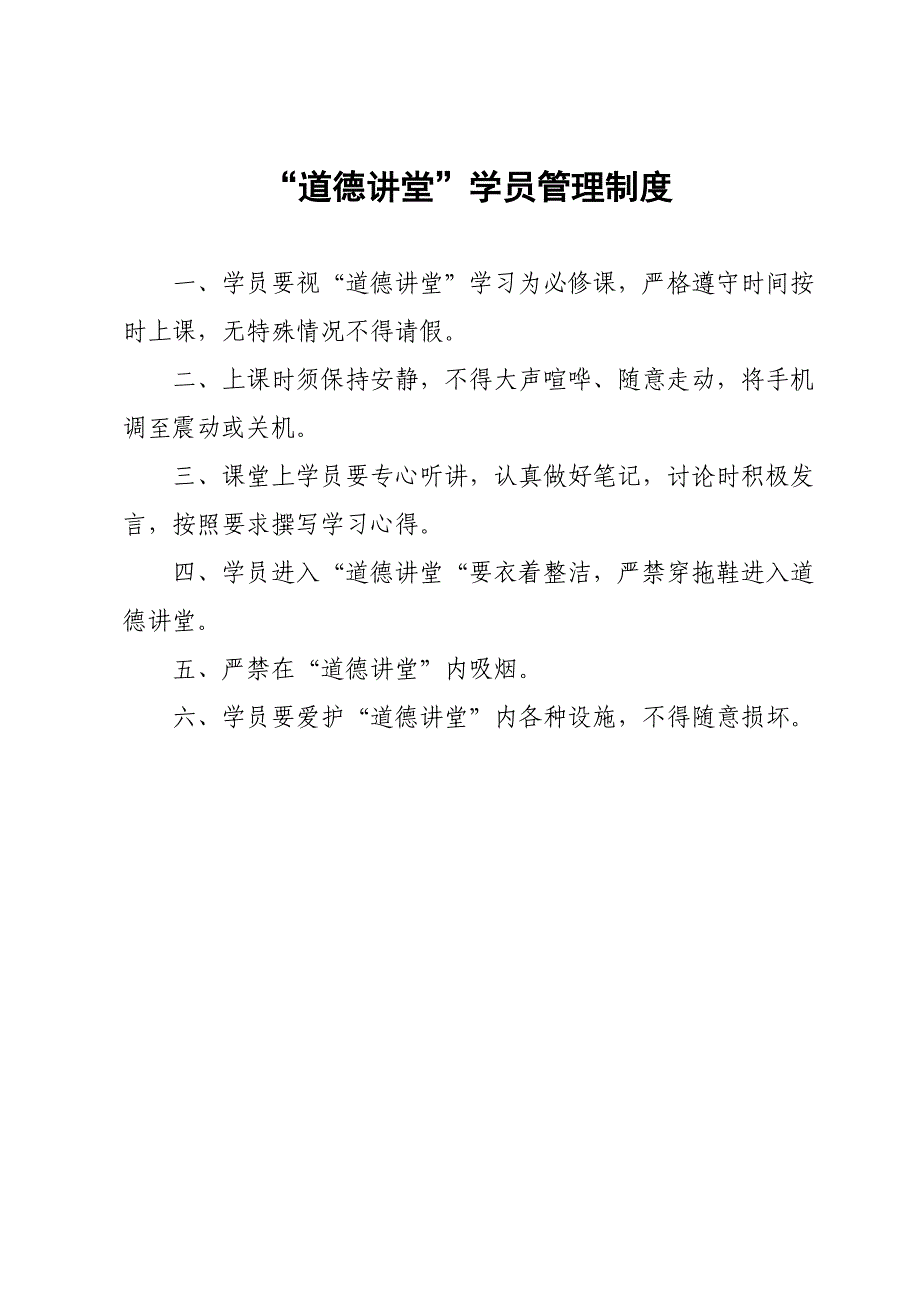 “道德讲堂”学员管理制度
一、学员要视“道德讲堂”学习为必修课，严格遵守时间按
时上课，无特殊情况不得请假。
二、上课时须保持安静，不得大声喧哗、随意走动，将手机
调至震动或关机。
三、课堂上学员要专心听讲，认真做好笔记，讨论时积极发
言，按照要求撰写学习心得。
四、学员进入“道德讲堂“要衣着整洁，严禁穿拖鞋进入道
德讲堂。
五、严禁在“道德讲堂”内吸烟。
六、学员要爱护“道德讲堂”内各种设施，不得随意损坏。